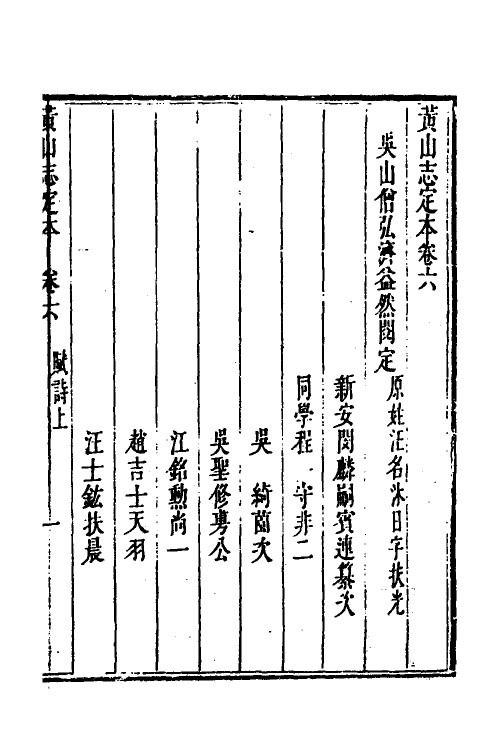 黄山志定本卷六
吳山僧弘濟益然閱定
原姓汪名沐日字扶光
新安閔麟嗣賓連纂次
同學程 守非二
吳 綺薗次
吳聖修專公
江銘勲尚一
趙吉士天羽
汪士鋐扶晨
黄山志定本 卷六 賦詩上 一